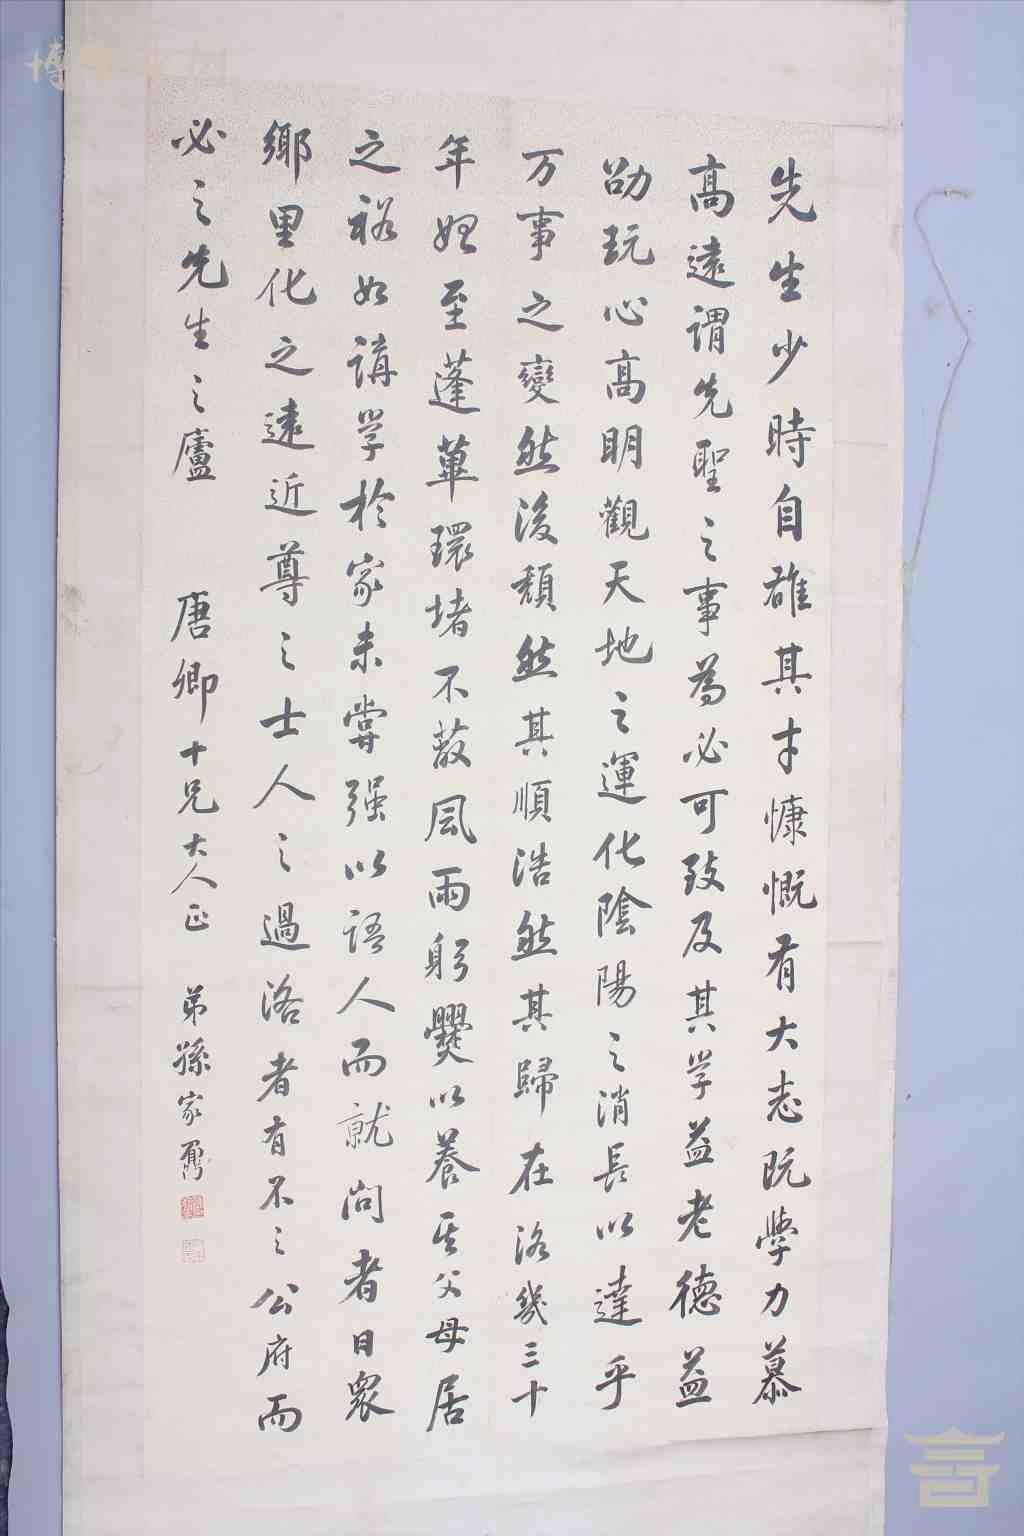 先生少時自雄其才慷慨有大志既學力慕
高遠謂先聖之事為必可致及其学益老德益
劭玩心高明觀天地之運化陰陽之消長以達乎
万事之變然後頹然其順浩然其歸在洛幾三十
年始至蓬蓽環堵不蔽風雨躬爨以養其父母居
之裕如講学於家未嘗强以語人而就问者日衆
鄉里化之遠近尊之士人之過洛者有不之公府而
必之先生之廬 唐卿十兄大人正 弟孫家鼐